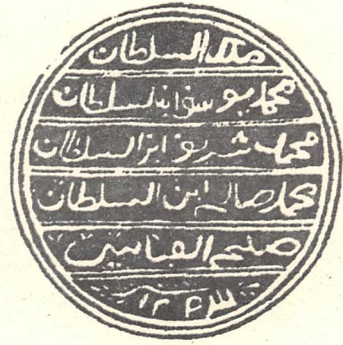 ملك السلطان
محمد يوسف ابن السلطان
محمد شريف ابن السلطان
محمد صالح ابن السلطان
العباسي